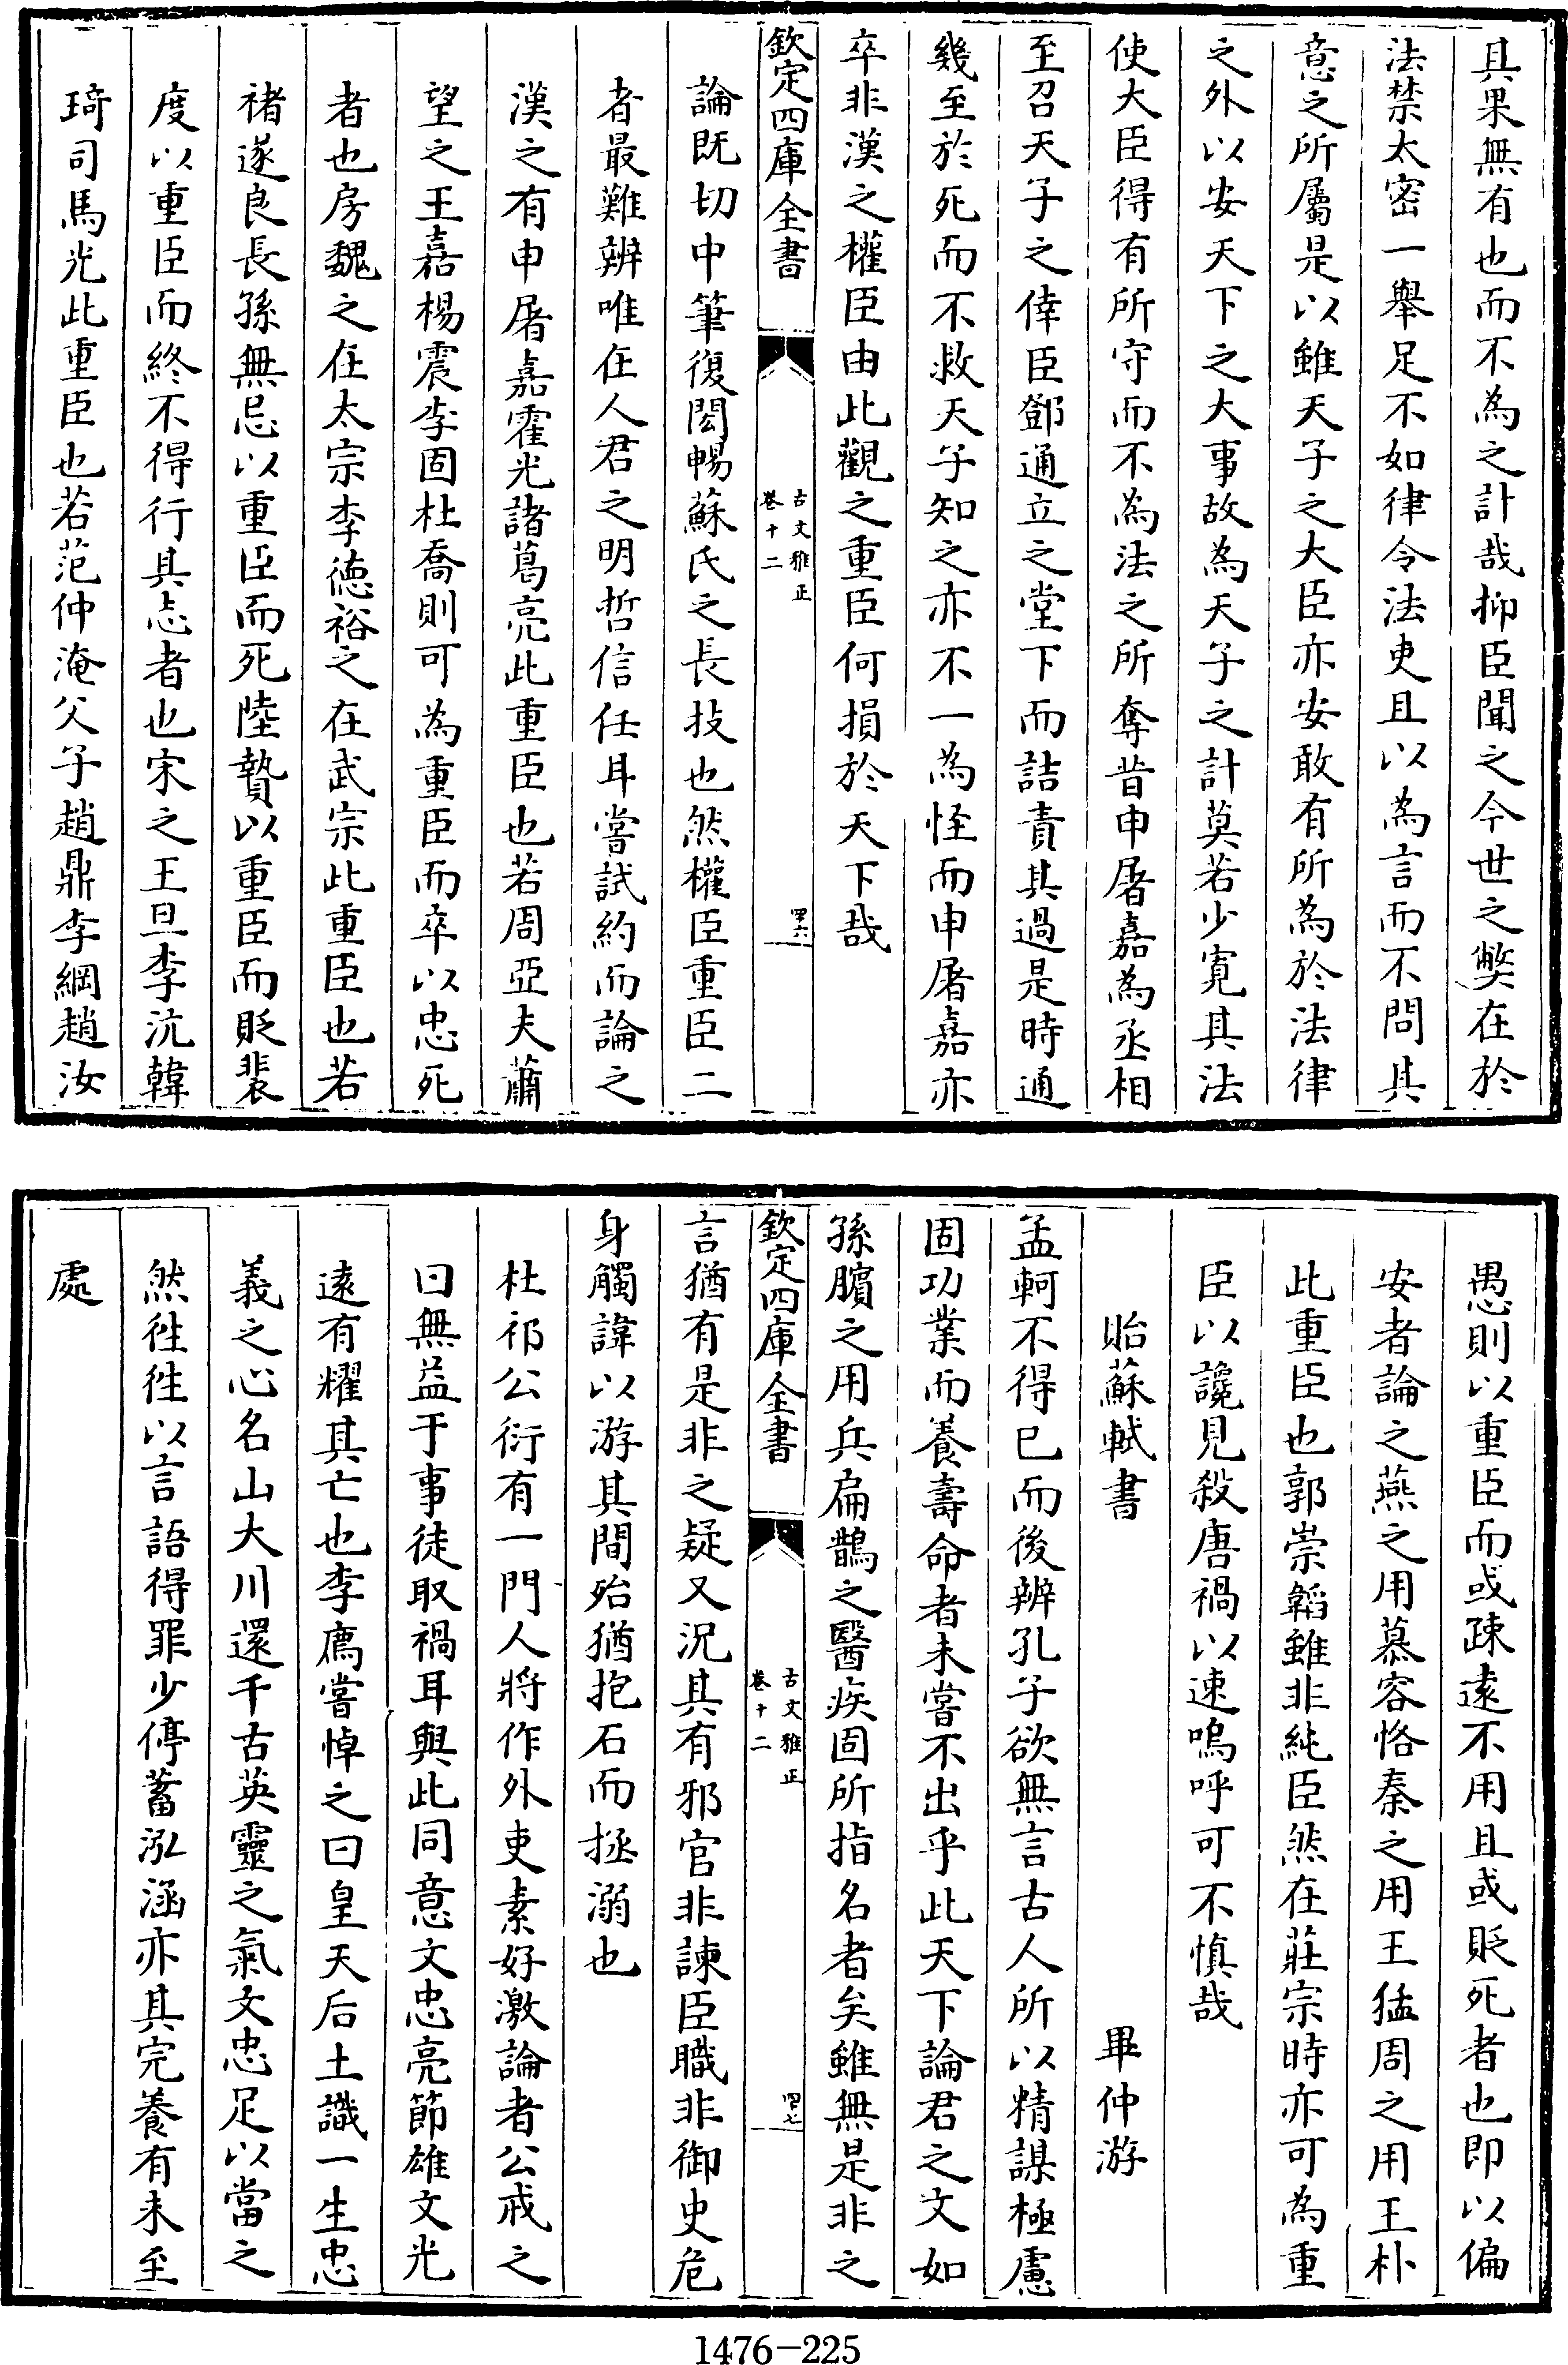 具果無有也而不為之計哉抑臣聞之今世之弊在於
法禁太密一舉足不如律令法吏且以為言而不問其
意之所屬是以雖天子之大臣亦安敢有所為於法律
之外以安天下之大事故為天子之計莫若少寛其法
使大臣得有所守而不為法之所奪昔申屠嘉為丞相
至召天子之倖臣鄧通立之堂下而詰責其過是時通
幾至於死而不救天子知之亦不一為怪而申屠嘉亦
卒非漢之權臣由此觀之重臣何損於天下哉
欽定四庫全書
古文雅正
卷十二
四十六
論既切中筆復閎暢蘇氏之長技也然權臣重臣二
者最難辨唯在人君之明哲信任耳嘗試約而論之
漢之有申屠嘉霍光諸葛亮此重臣也若周亞夫蕭
望之王嘉楊震李固杜喬則可為重臣而卒以忠死
者也房魏之在太宗李德裕之在武宗此重臣也若
褚遂良長孫無忌以重臣而死陸贄以重臣而貶裴
度以重臣而終不得行其志者也宋之王旦李沆韓
琦司馬光此重臣也若范仲淹父子趙鼎李綱趙汝
愚則以重臣而或疎遠不用且或貶死者也即以偏
安者論之燕之用慕容恪秦之用王猛周之用王朴
此重臣也郭崇韜雖非純臣然在莊宗時亦可為重
臣以讒見殺唐禍以速嗚呼可不慎哉
貽蘇軾書 畢仲游
孟軻不得已而後辨孔子欲無言古人所以精謀極慮
固功業而養壽命者未嘗不出乎此天下論君之文如
孫臏之用兵扁鵲之醫疾固所指名者矣雖無是非之
欽定四庫全書
古文雅正
卷十二
四十七
言猶有是非之疑又況其有邪官非諫臣職非御史危
身觸諱以游其間殆猶抱石而拯溺也
杜祁公衍有一門人將作外吏素好激論者公戒之
曰無益于事徒取禍耳與此同意文忠亮節雄文光
遠有耀其亡也李廌嘗悼之曰皇天后土識一生忠
義之心名山大川還千古英靈之氣文忠足以當之
然徃徃以言語得罪少停蓄泓涵亦其完養有未至
處
1476-225